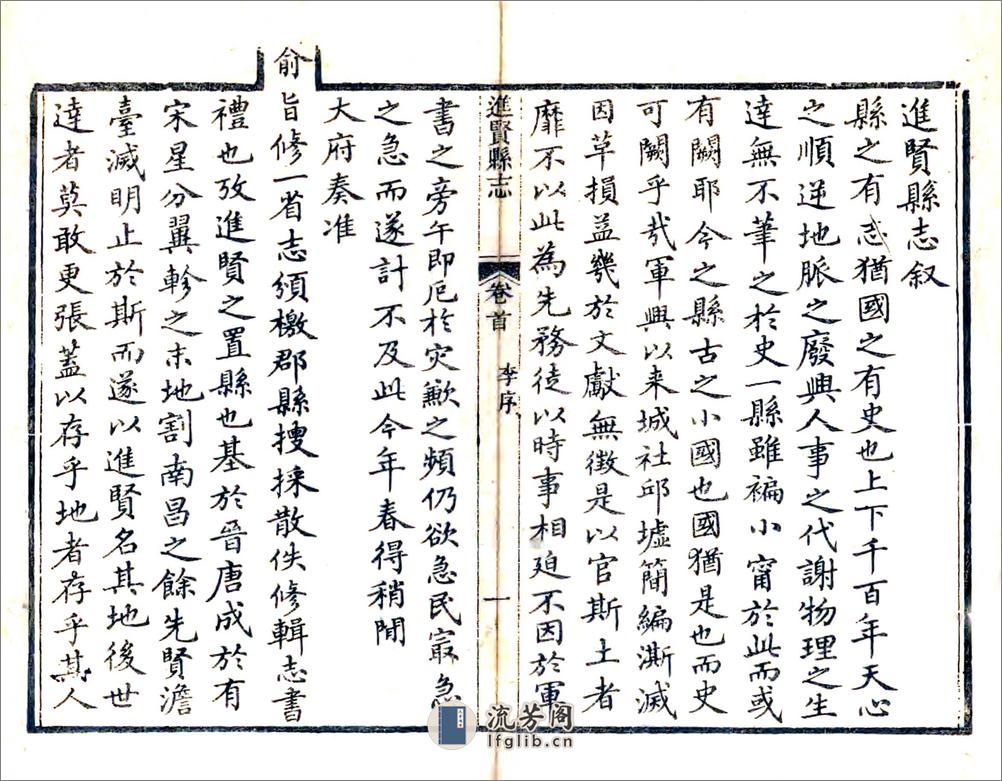 進賢縣志叙
縣之有志猶國之有史也上下千百年天心
之順逆地脈之廢興人事之代謝物理之生
達無不筆之於史一縣雖褊小甯於此而或
有闕耶今之縣古之小國也國猶是也而史
可闕乎㢤軍興以来城社邱墟簡編澌滅
因革損益幾於文獻無徵是以官斯土者
靡不以此為先務徒以時事相廹不因於軍
進賢縣志
卷首
李序
一
書之旁午即厄於灾歉之頻仍欲急民㝡急
之急而遂計不及此今年春得稍閒
大府奏准
俞旨修一省志頒檄郡縣搜採散佚修輯志書
禮也攷進賢之置縣也基於晉唐成於有
宋星分翼軫之末地割南昌之餘先賢澹
臺滅明止於斯而遂以進賢名其地後世
達者莫敢更張蓋以存乎地者存乎其人
流芳阁
lfglib.cn